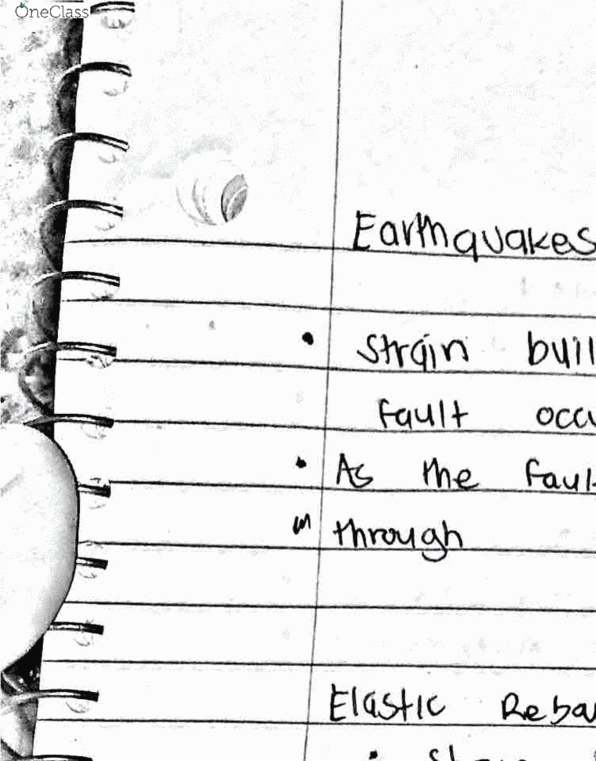 OneClass
Earthquakes
• Strain buil
fault occu
• As the faul
through
Elastic Rebo
•